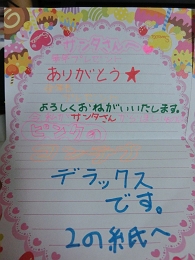 サンタさんへ
ありがとう★
よろしくおねがいいたします。
サンタさん
ピンクの
デラックス
です。
2の紙へ